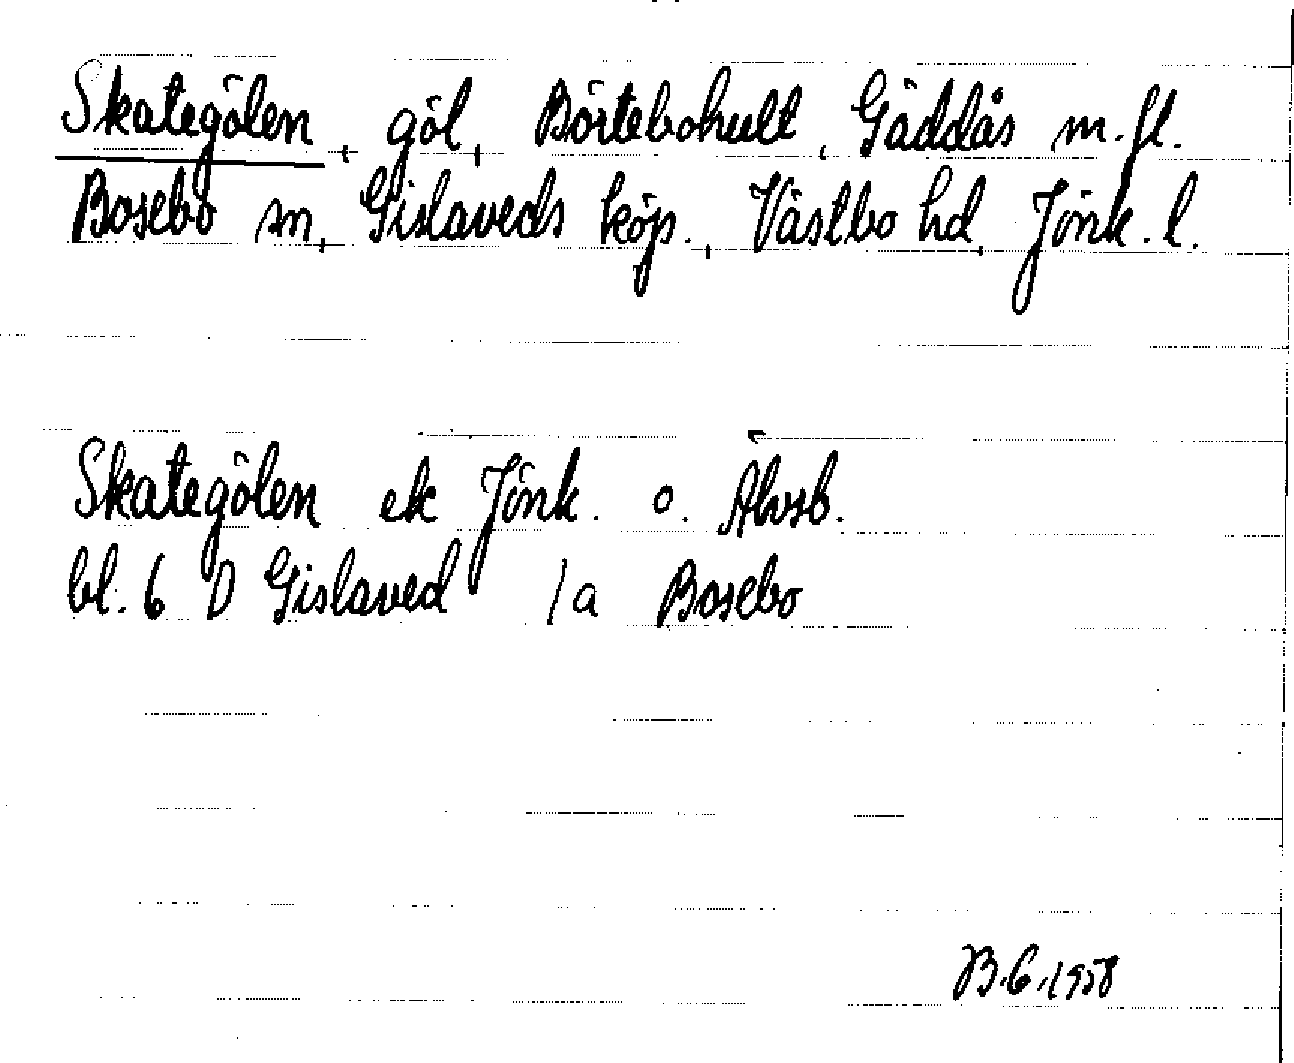 Skategölen, göl, Börtebohult, Gäddås m.fl.
Bosebo sn, Gislaveds köp., Västbo hd, Jönk. l.
Skategölen ek Jönk. o. Älvsb.
bl. 6 D Gislaved 1a Bosebo
B.G.1958